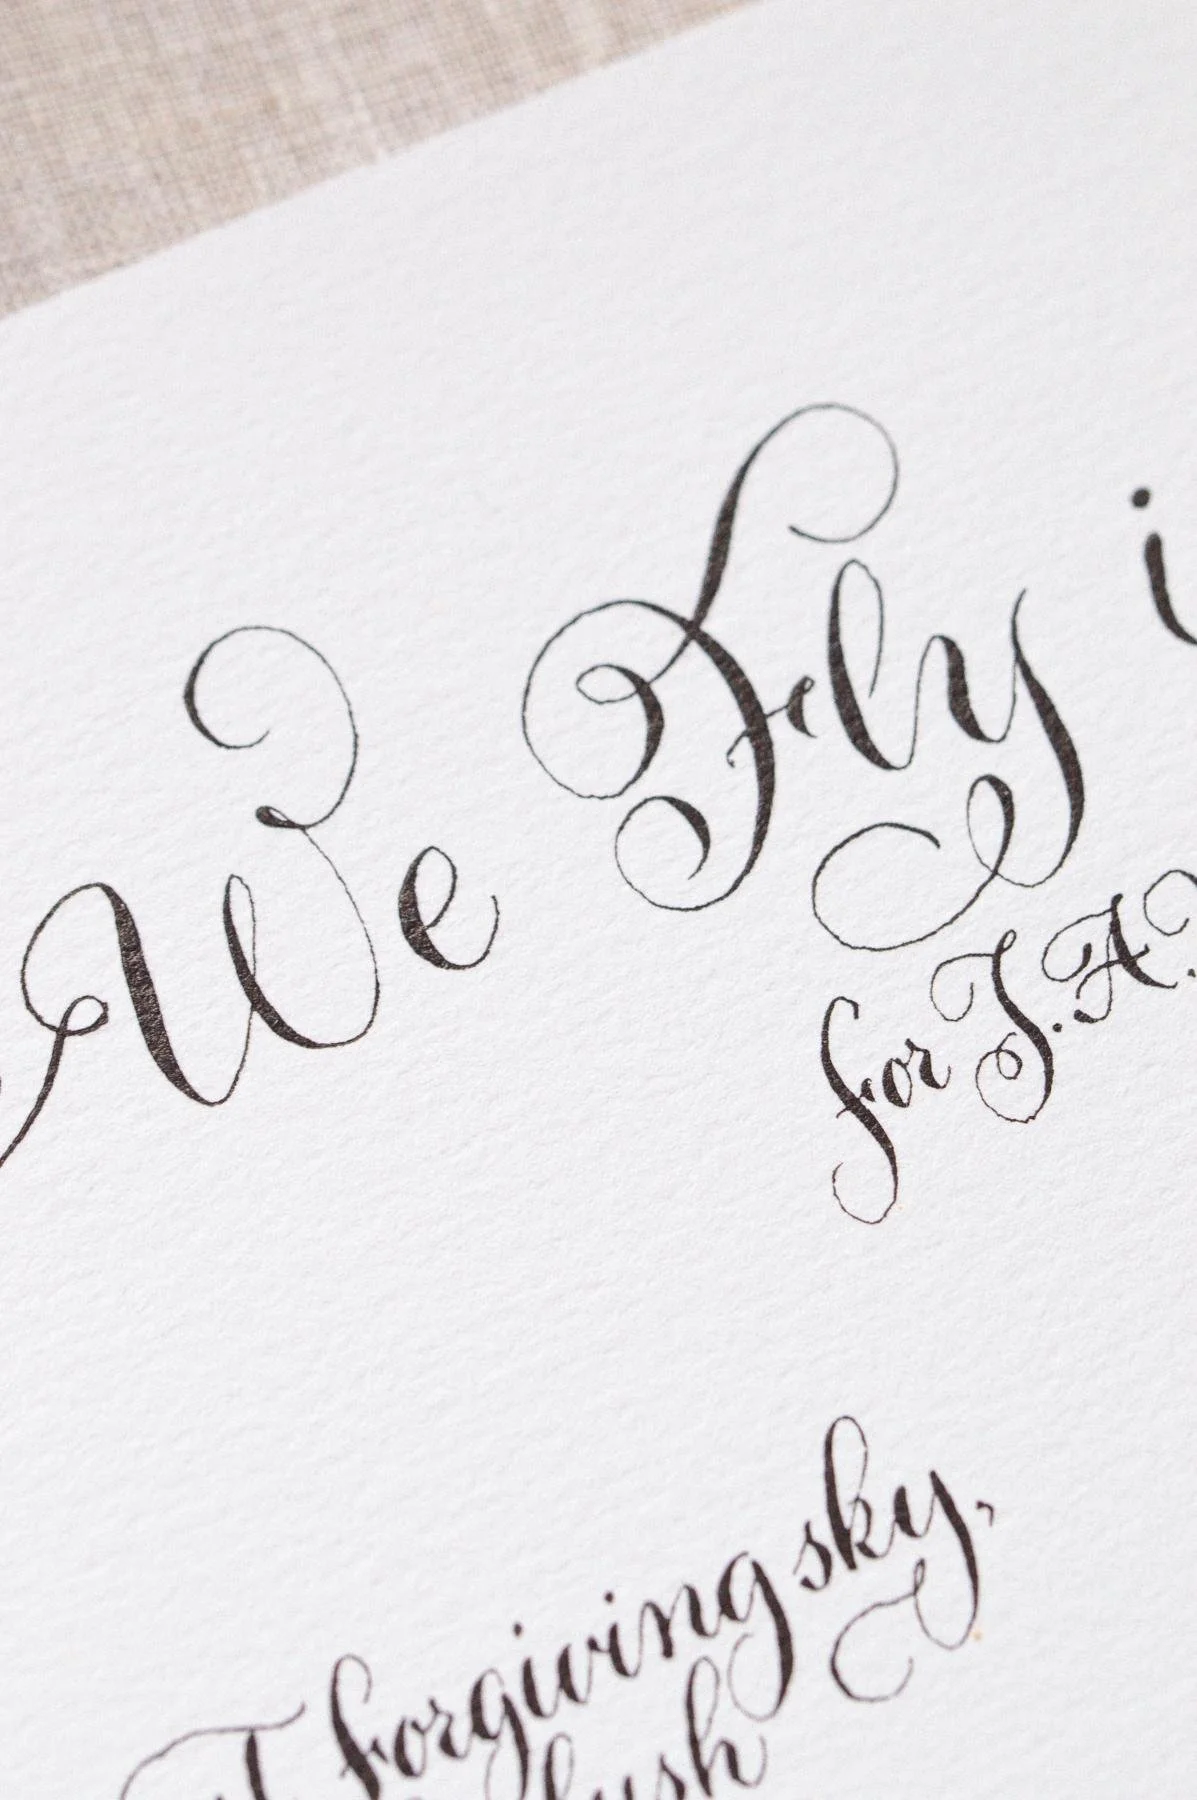 We Fly i
for J.A.
forgiving sky,
lush